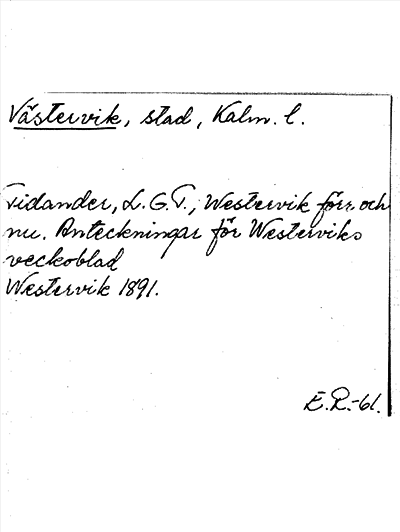 Västervik, stad, Kalm. l.
Tidander, L.G.T., Westervik förr och
nu. Anteckningar för Westerviks
veckoblad
Westervik 1891.
E.R.-61.